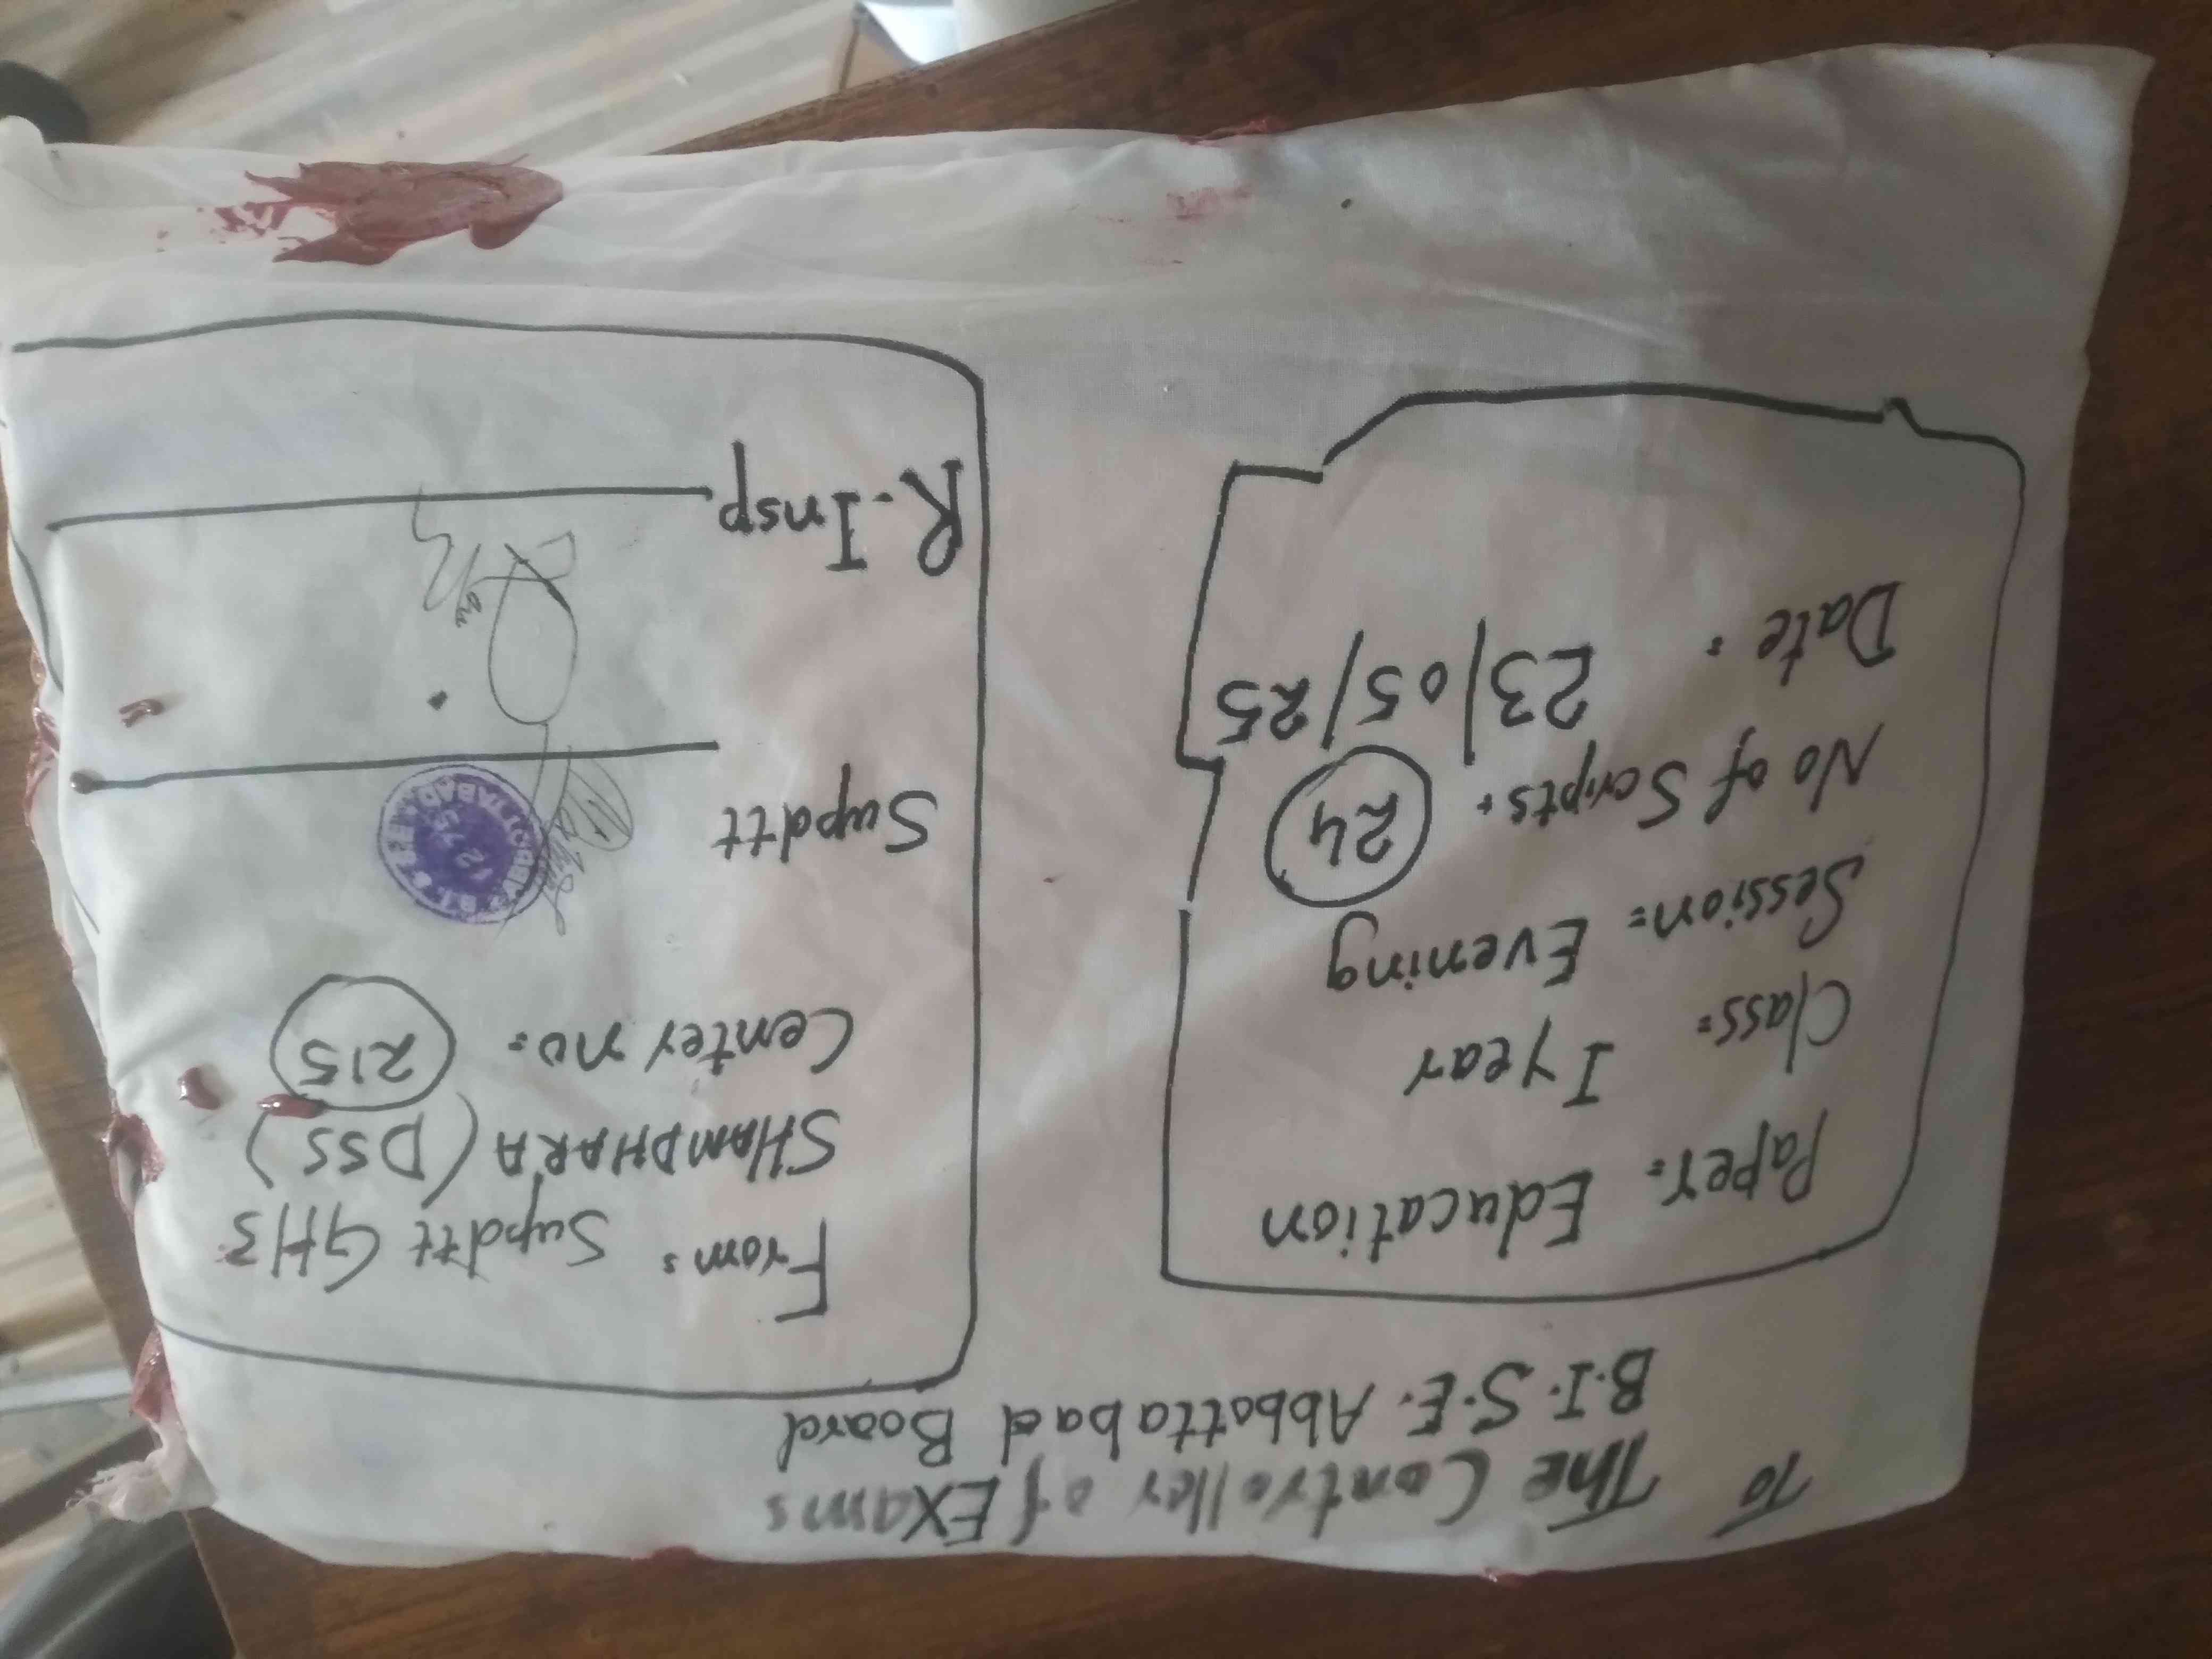 To
The Controller of Exams
B.I.S.E. Abbottabad Board
Paper= Education
Class= I year
Session= Evening
No of Scripts= 24
Date= 23/05/25
From= Supdtt GHS
SHAMDHARA (DSS)
Center no= 215
Supdtt
B.I.S.E. ABBOTTABAD
275
R-Insp